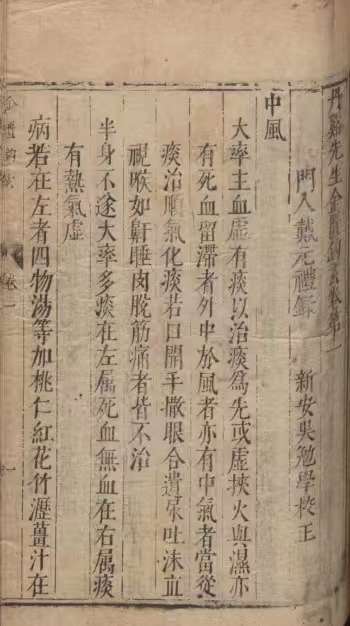 丹谿先生金匱鉤玄卷第一
門人戴元禮錄　新安吳勉學校正
中風
大率主血虛有痰以治痰爲先或虛挾火與濕亦
有死血留滯者外中於風者亦有中氣者當從
痰治順氣化痰若口開手撒眼合遺尿吐沫直
視喉如鼾睡肉脫筋痛者皆不治
半身不遂大率多痰在左屬死血無血在右屬痰
有熱氣虛
病若在左者四物湯等加桃仁紅花竹瀝薑汁在
金匱鉤玄　卷一　一